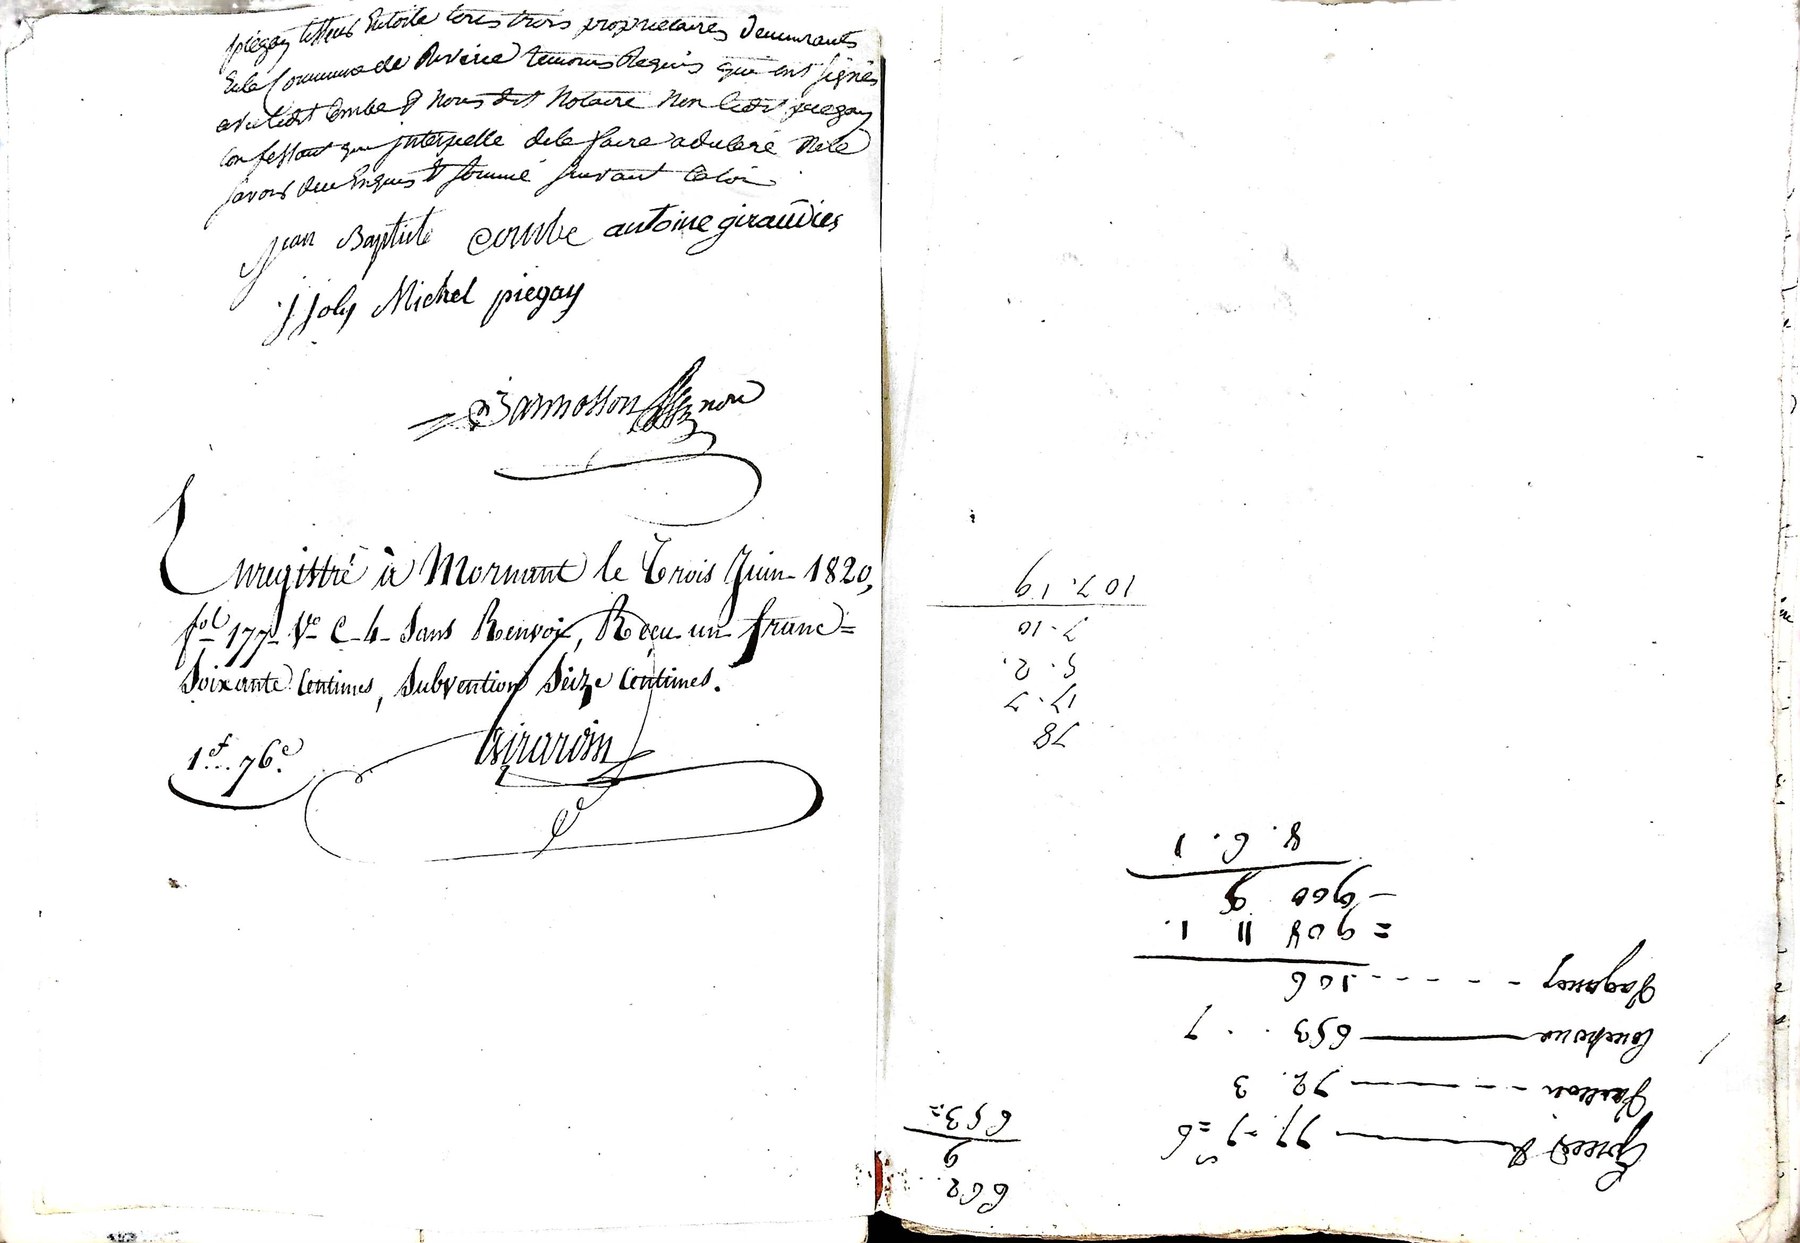 piegay tisseur Entoile tous trois proprietaires demeurants
Enla Commune de Riverie temoins Requis qui ont signés
avec ledit Combe & Nous dit Notaire Non ledit piegay
confessant qui interpellé dele faire a declaré Nele
savoir deu Enquis & sommé suivant laloi
jean Baptiste combe antoine giraudies
j joly Michel piegay
not
Enregistré à Mornant le Trois Juin 1820,
fol 177 Vo C 4 Sans Renvoi, Reçu un franc=
Soixante Centimes, Subvention Seize Centimes.
1f..76c.
Girardin
78
17. 7
5. 2.
7. 10
107. 19
77 = 7s = 6
72. 3
653. . 7
106
= 908 11 1.
- 900 9
8. 6. 1
662
9
653=